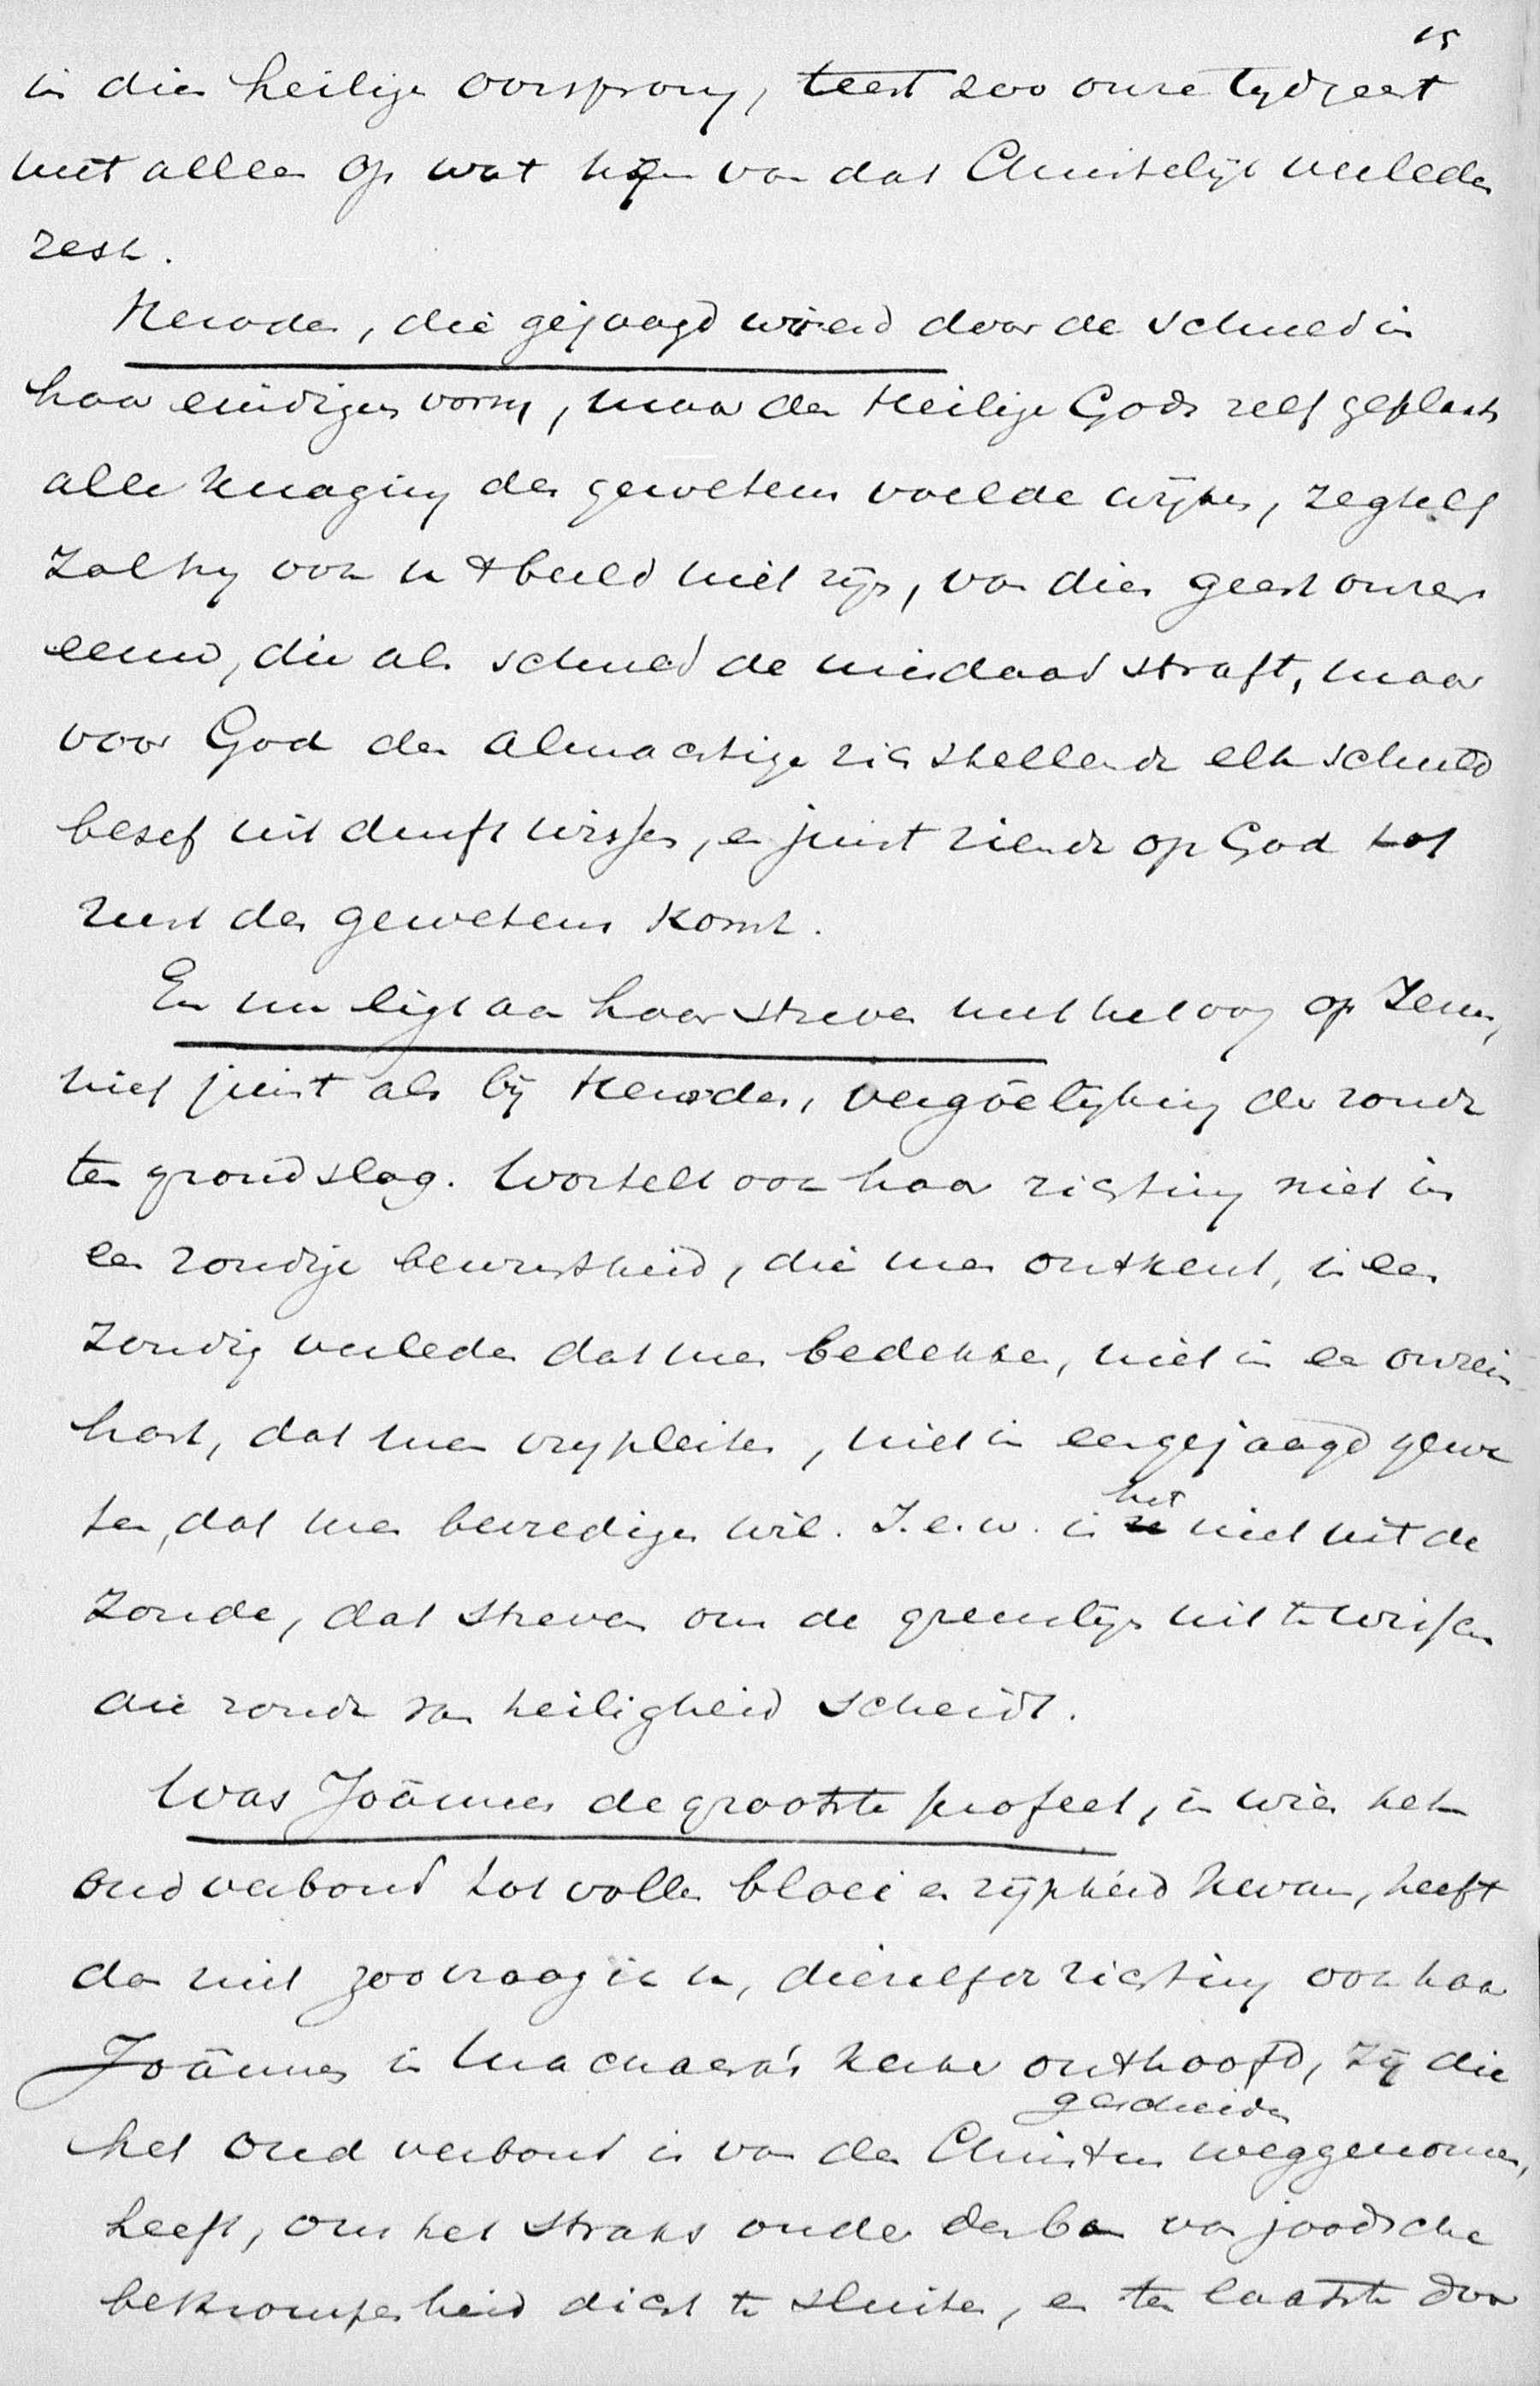 15
in dien heilige oorsprong, teert zoo onze tijdgeest
niet alleen op wat hem van dat Christelijk verleden
rest.
Herodes, die gejaagd wierd door de schuld in
haar eindigen vorm, maar den Heilige Gods zelf geplaatst
alle knaging des gewetens voelde wijken, zeg zelf
zal hij ook u 't beeld niet zijn, van dien geest onzer
eeuw, die als schuld de misdaad straft, maar
voor God den Almachtige zich stellende elk schuld
besef uit durft wisschen, en juist ziende op God tot
rust des gewetens komt.
En nu ligt aan haar streven met het oog op Jezus,
niet juist als bij Herodes, vergoelijking der zonde
ten grondslag. Wortelt ook haar richting niet in
een zondige bewustheid, die men ontkent, in een
zondig verleden dat men bedekken, niet in een onrein
hart, dat men vrypleiten, niet in een gejaagd gewe
ten, dat men bevredigen wil. I.e.w. is het niet uit de
zonde, dat streven om de grenslijn uit te wisschen
die zonde van heiligheid scheidt.
Was Joännes de grootste profeet, in wien het
oud verbond tot vollen bloei en rijpheid kwam, heeft
dan niet zoo vraag ik u, diezelfde richting ook haar
Joännes in Machaera's kerker onthoofd, zij die
het oud verbond is van den Christus gescheiden weggenomen,
heeft, om het straks onder den ban van joodsche
bekrompenheid dicht te sluiten, en ten laatste door